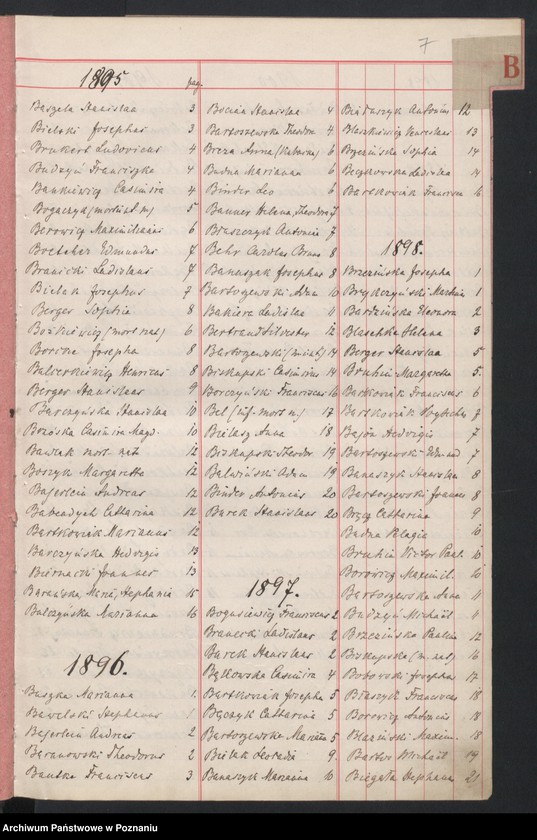 7
B
1895
pag.
Baszela Stanislaa 3
Bielski Josephus 3
Brukert Ludovicus 4
Budzyń Franciszka 4
Bankiewicz Casimira 4
Bogaczyk (mortu n) 5
Berowicz Maximilianus 6
Boetcher Edmundus 7
Branicki Ladislaus 7
Bielak Josephus 7
Berger Sophia 8
Bońkiewicz (mort nat) 6
Josepha 8
Balcerkiewicz Henricus 8
Berger Stanislaus 9
Barczyńska Stanislaa 10
Casimira Magd. 10
Bawlak mort. nat 12
Boszyk Margaretta 12
Bajerlein Andreas 12
Catharina 12
Bartkowiak Marianna 12
Barczyńska Hedvigis 13
Biernacki Joannes 13
Barańska Maria, Stephania 15
Balczyńska Marianna 16
1896.
Buszka Marianna 1.
Bawelski Stephanus 1
Bajerlein Andreas 2
Baranowski Theodorus 2
Bautka Franciscus 3
Bocian Stanislaa 4
Bartoszewska Theodora 4
Breza Anna 6
Budna Marianna 6
Binder Leo 6
Banner Helena, Theodora 7
Błaszczyk Antonia 7
Behr Carolus Bruno 8
Banaszak Josephus 8
Bartoszewski Adam 10
Bakiera Ladislaa 11
Bertrand Silvester 12
Bartoszewski 14
Biskupski Casimirus 14
Borczyński Franciscus 16
Bel (inf. mort n) 17
Bielasz Anna 18
Biskupski Theodor 19
Balwiński Adam 19
Binder Antonius 20
Burek Stanislaus 20
1897.
Bogusiewicz Franciscus 2
Branecki Ladislaus 2
Burek Stanislaus 2
Bąkowska Casimira 4
Bartkowiak Josepha 5
Bęczyk Catharina 5
Bartoszewska Marianna 5
Bielak Leocadia 9.
Banaszyk Marianna 10
Binduszyk Antonius 12
Blaszkiewicz Venceslaus 13
Sophia 14
Bączkowska Ladislaa 14
Bartkowiak Francisca 6
1898.
Brzezińska Josepha 1
Martinus 1
Bardzińska Eleonora 2
Blaschke Helena 3
Berger Stanislaa 5
Bruhin Margaretta 5.
Bartkowiak Franciscus 6
Bartkowiak 7
Bajon Hedvigis 7
Bartoszewski Edmund 7
Banaszyk Stanislaa 8
Bartoszewski Joannes 8
Catharina 9
Budna Pelagia 10
Bruhin Victor Paul. 10
Borowicz Maximil. 10
Bartoszewska Anna 11
Budzyń Michael 11
Brzezińska Paulina 12
Biskupska (m. nat) 16
Bobowski Josepha 17
Błaszyk Franciscus 18
Borowicz Antonius 18
Blaziński Maxim. 18
Bartos Michael 19
Biegała Stephania 21
Archiwum Państwowe w Poznaniu